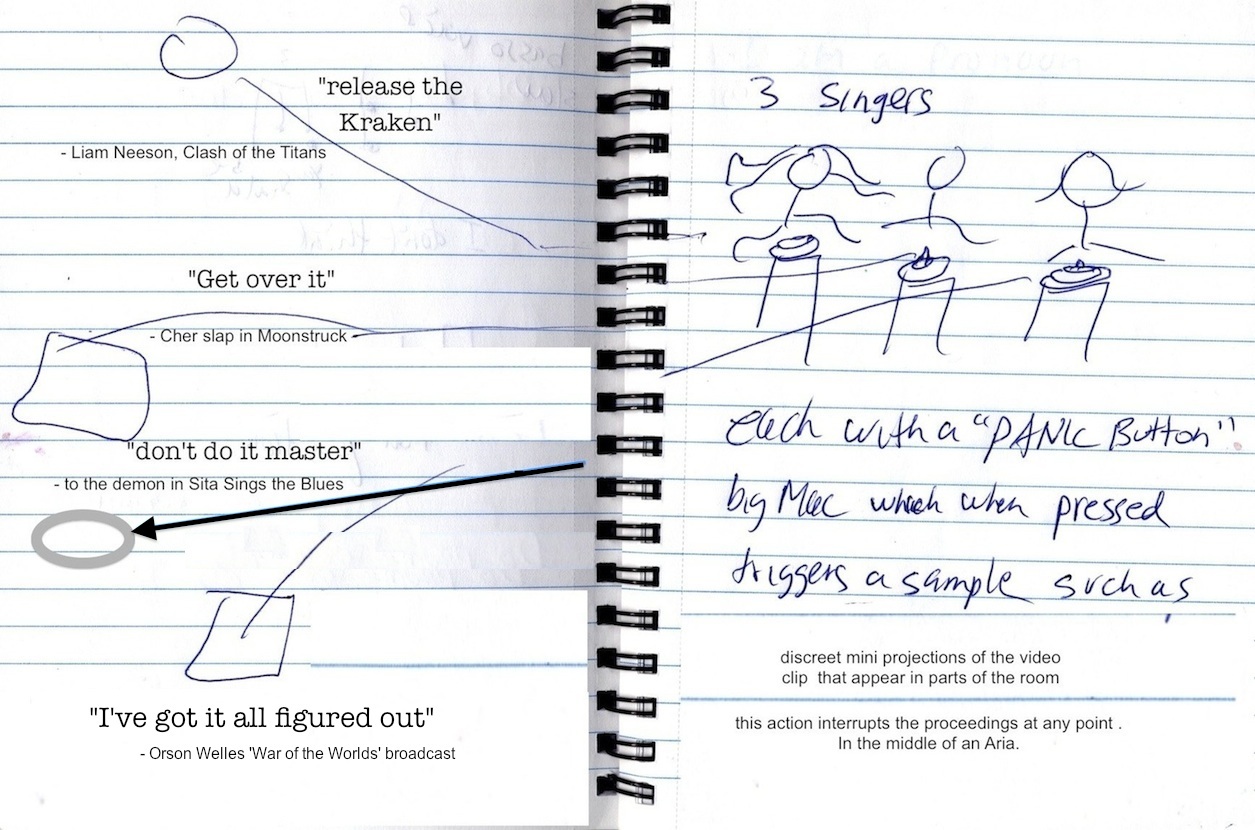 "release the
Kraken"
- Liam Neeson, Clash of the Titans
"Get over it"
- Cher slap in Moonstruck -
"don't do it master"
- to the demon in Sita Sings the Blues
"I've got it all figured out"
- Orson Welles 'War of the Worlds' broadcast
3 Singers
Each with a "PANIC Button"
big Mac which when pressed
triggers a sample such as
discreet mini projections of the video
clip that appear in parts of the room
this action interrupts the proceedings at any point .
In the middle of an Aria.